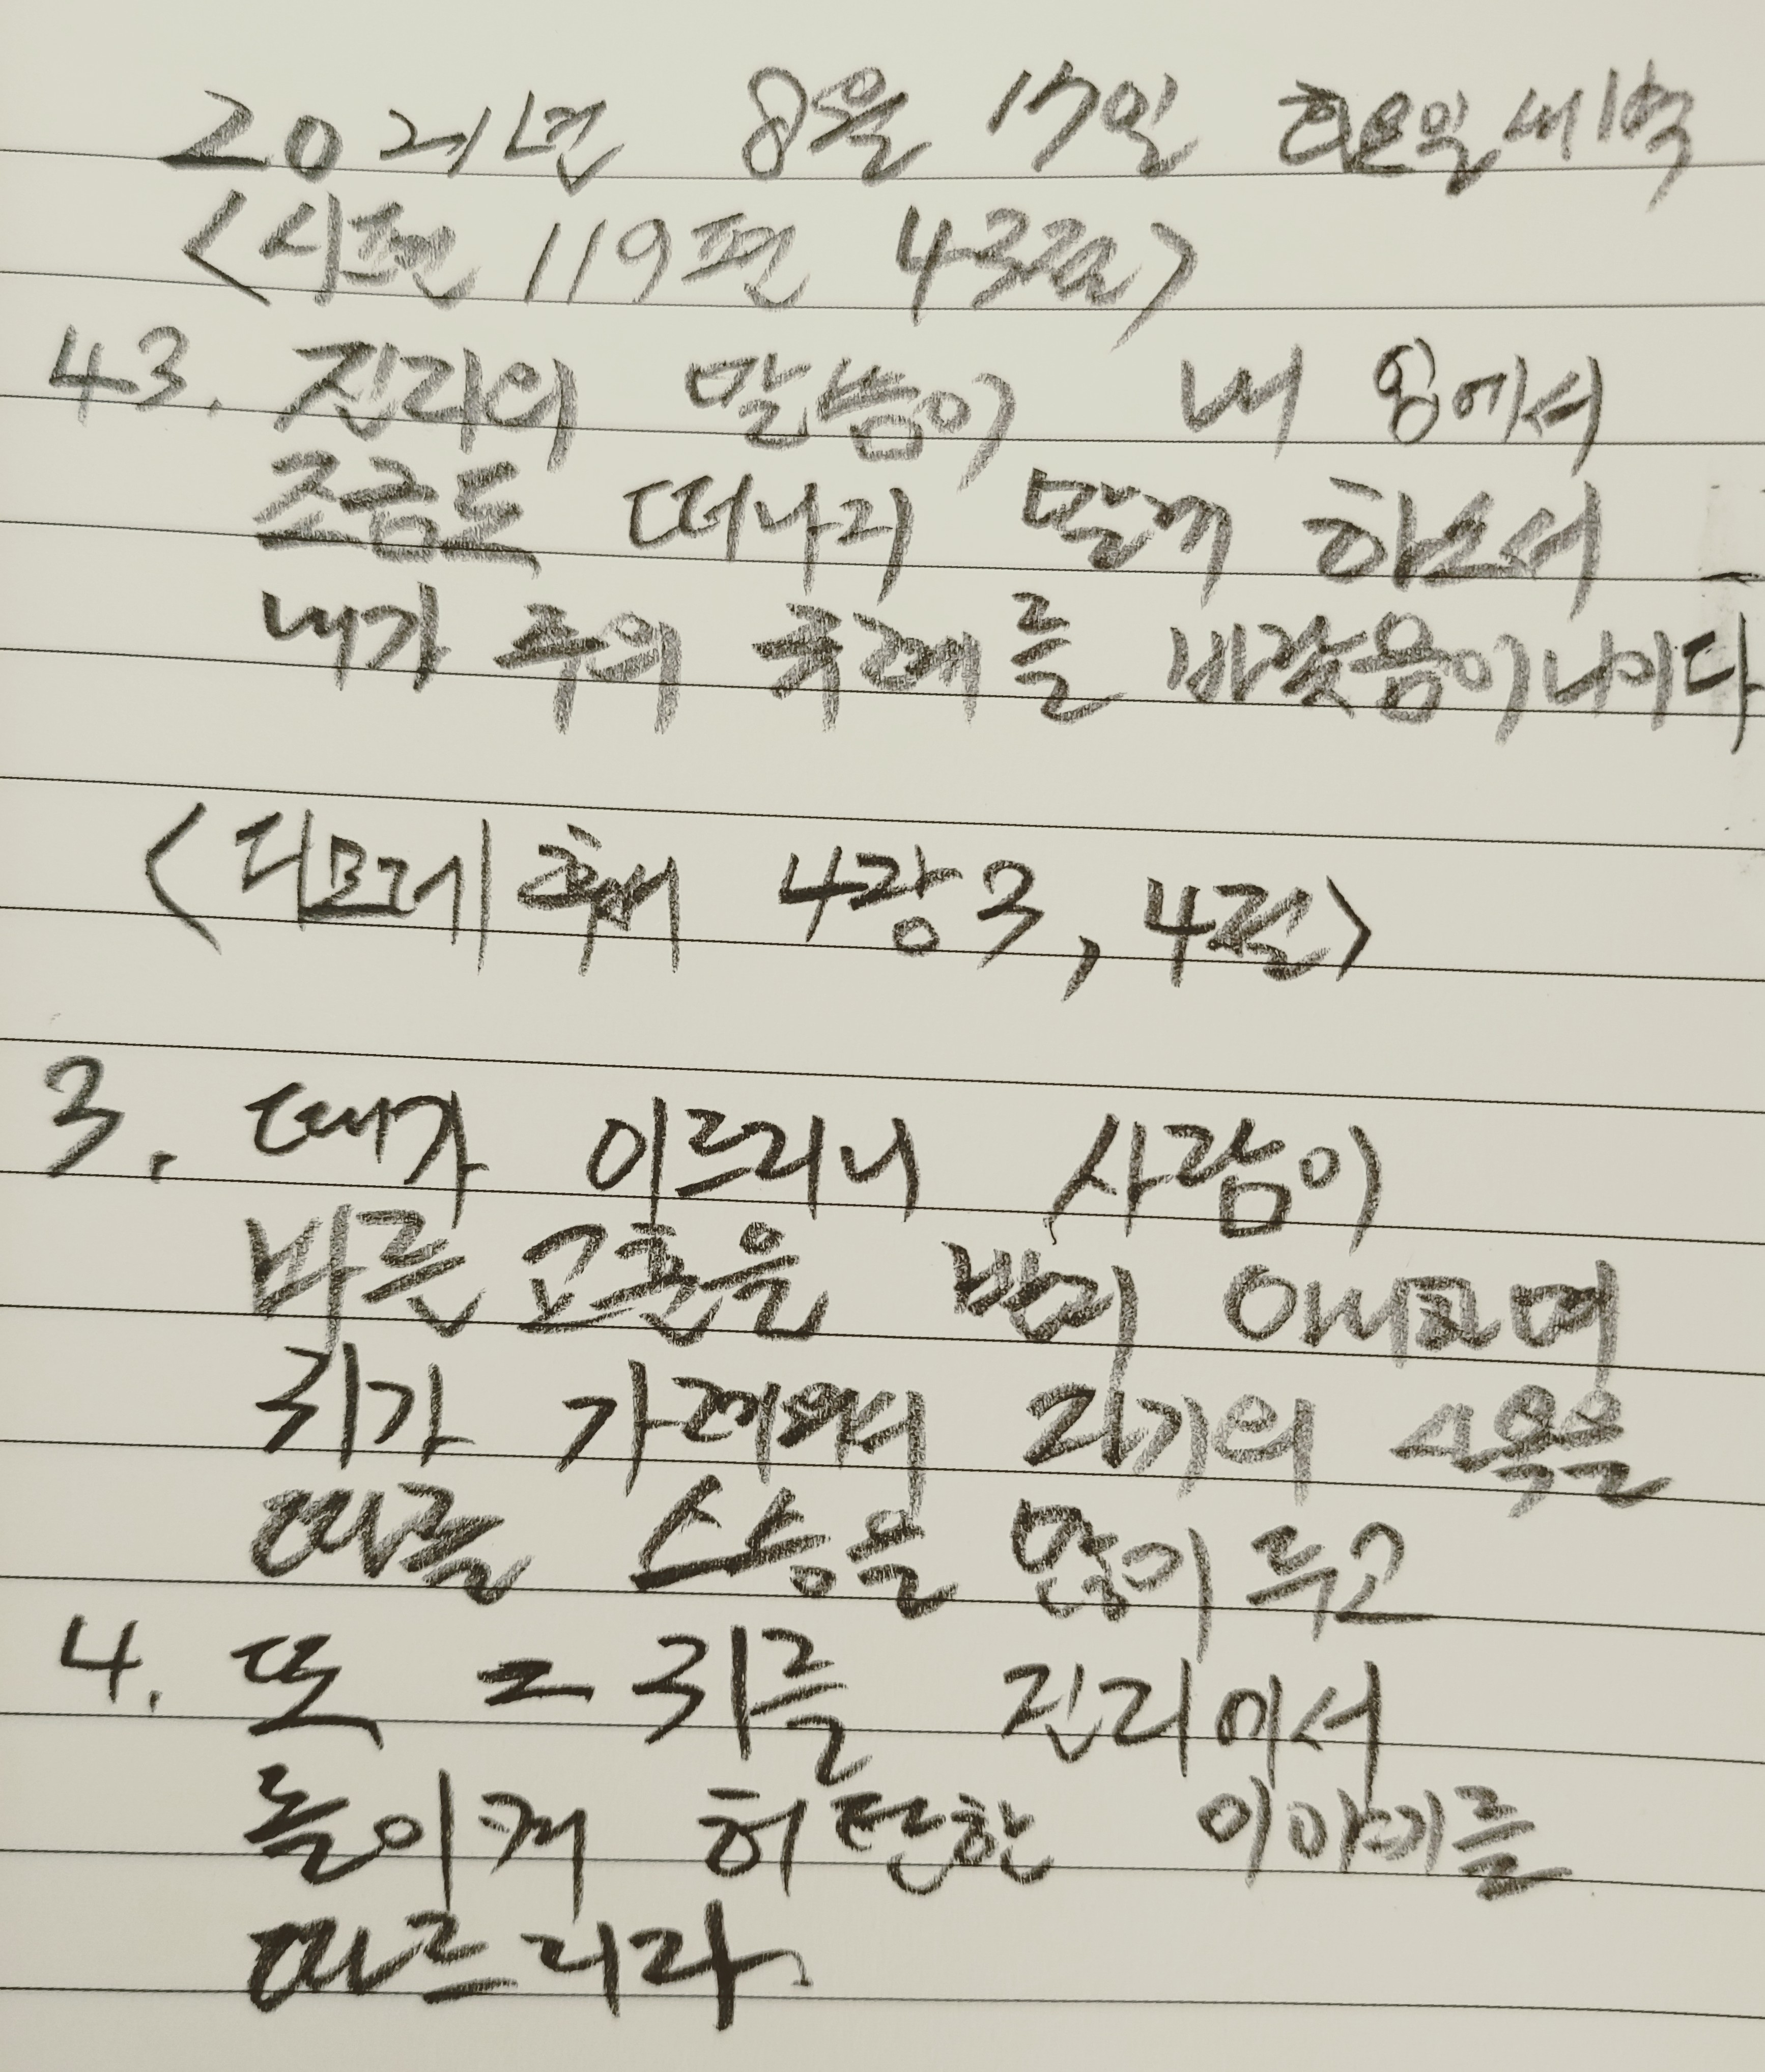 2021년 8월 17일 화요일 새벽
<시편 119편 43절>
43. 진리의 말씀이 내 입에서
조금도 떠나지 말게 하소서
내가 주의 규례를 바랐음이니이다
<디모데후서 4장 3, 4절>
3. 때가 이르리니 사람이
바른 교훈을 받지 아니하며
귀가 가려워서 자기의 사욕을
따를 스승을 많이 두고
4. 또 그 귀를 진리에서
돌이켜 허탄한 이야기를
따르리라.